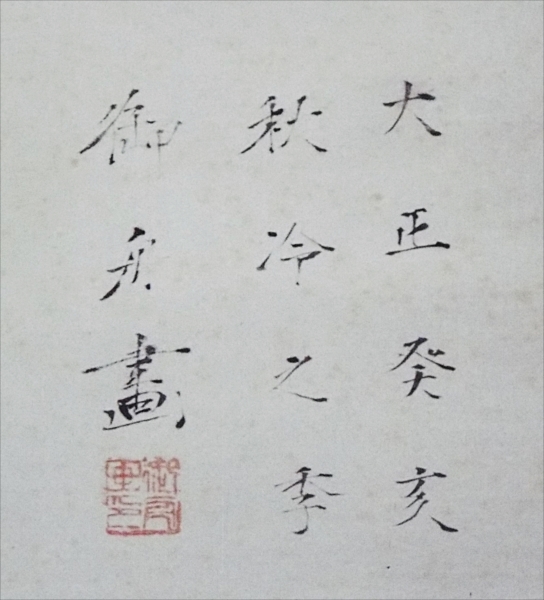 大正癸亥
秋冷之季
御舟畫